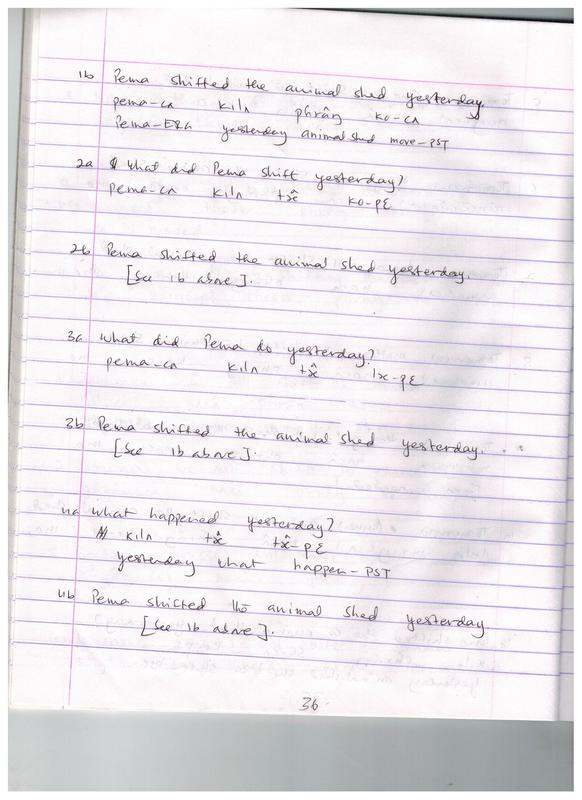 1b Pema shifted the animal shed yesterday.
pema-cʌ kilʌ phrâŋ ko-cʌ
Pema-ERG yesterday animal shed move-PST
2a What did Pema shift yesterday?
pema-cʌ kilʌ ko-pɛ
2b Pema shifted the animal shed yesterday.
[See 1b above].
3a What did Pema do yesterday?
pema-cʌ kilʌ
3b Pema shifted the animal shed yesterday.
[See 1b above].
4a What happened yesterday?
kilʌ
yesterday what happen-PST
4b Pema shifted the animal shed yesterday
[See 1b above].
36